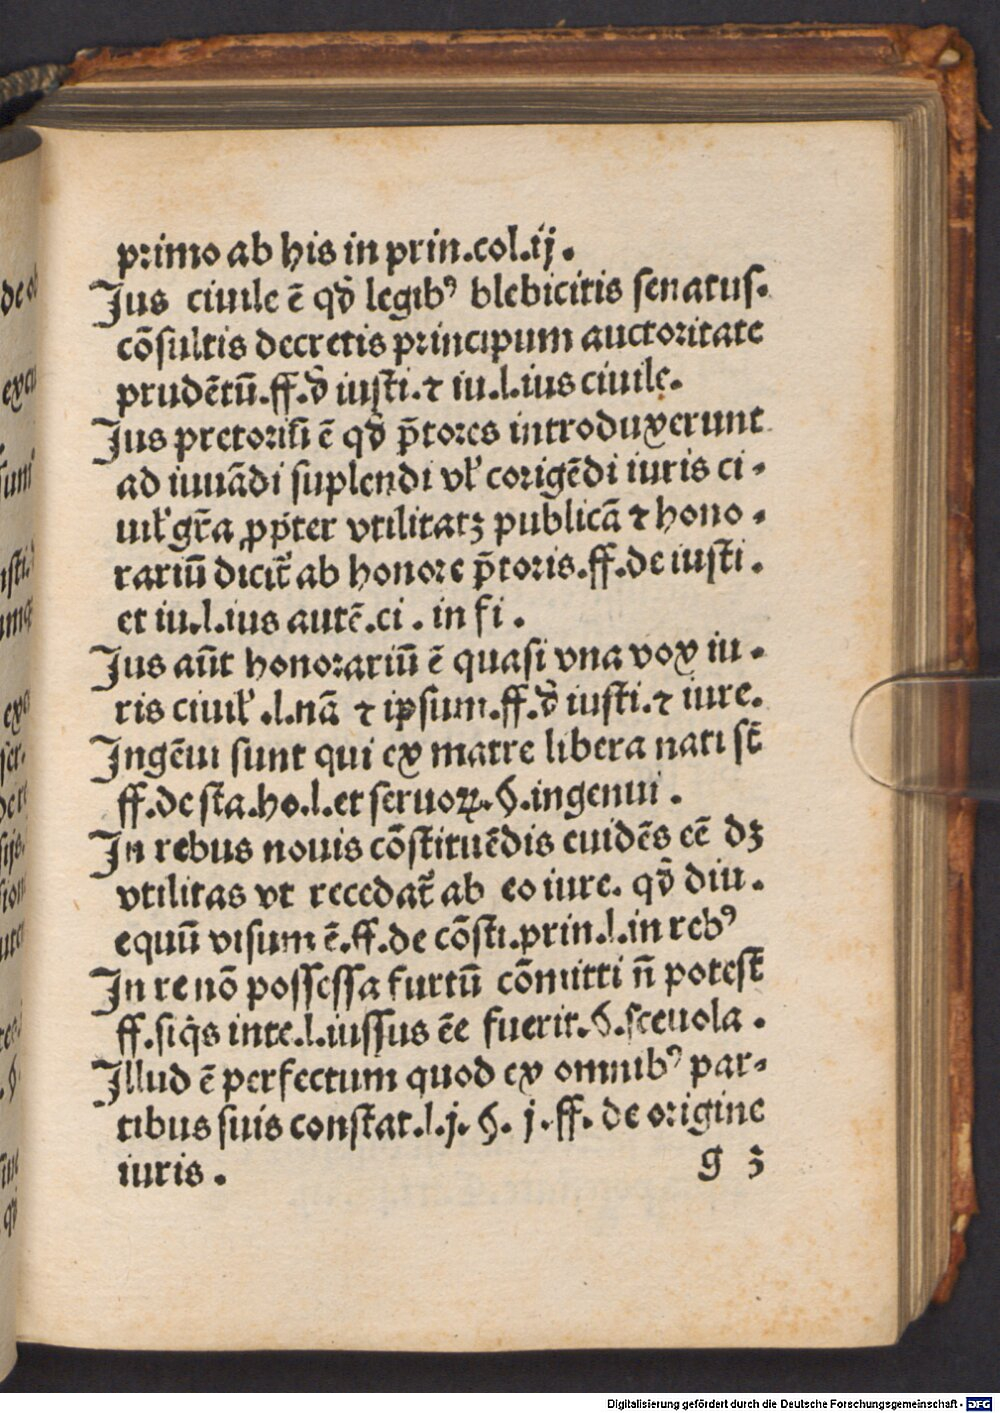 primo ab his in prin.col.ij.
Jus ciuile ē qđ legibꝰ blebicitis senatus.
cōsultis decretis principum auctoritate
prudētū.ff.đ iusti.⁊ iu.l.ius ciuile.
Jus pretoriū ē qđ p̄tores introduxerunt
ad iuuādi suplendi vl̓ corigēdi iuris ci.
uil̓ gr̄a ꝓpter vtilitatꝫ publicā ⁊ hono.
rariū dicit̄ ab honore p̄toris.ff.de iusti.
et iu.l.ius autē.ci. in fi.
Jus aūt honorariū ē quasi vna vox iu.
ris ciuil̓ .l.nā ⁊ ipsum.ff.đ iusti.⁊ iure.
Ingēui sunt qui ex matre libera nati st̄
ff.de sta.ho.l.et seruoꝝ.§.ingenui.
In rebus nouis cōstituēdis euidēs eē dꝫ
vtilitas vt recedat̄ ab eo iure. qđ diu.
equū visum ē.ff.de cōsti.prin.l.in rebꝰ
In re nō possessa furtū cōmitti n̄ potest
ff.siq̄s inte.l.iussus ēe fuerit.§.sceuola.
Illud ē perfectum quod ex omnibꝰ par-
tibus suis constat.l.j.§. j.ff. de origine
iuris.
g 3
de
exc
sum
exc
ser.
sijs.
sion
Digitalisierung gefördert durch die Deutsche Forschungsgemeinschaft - DFG